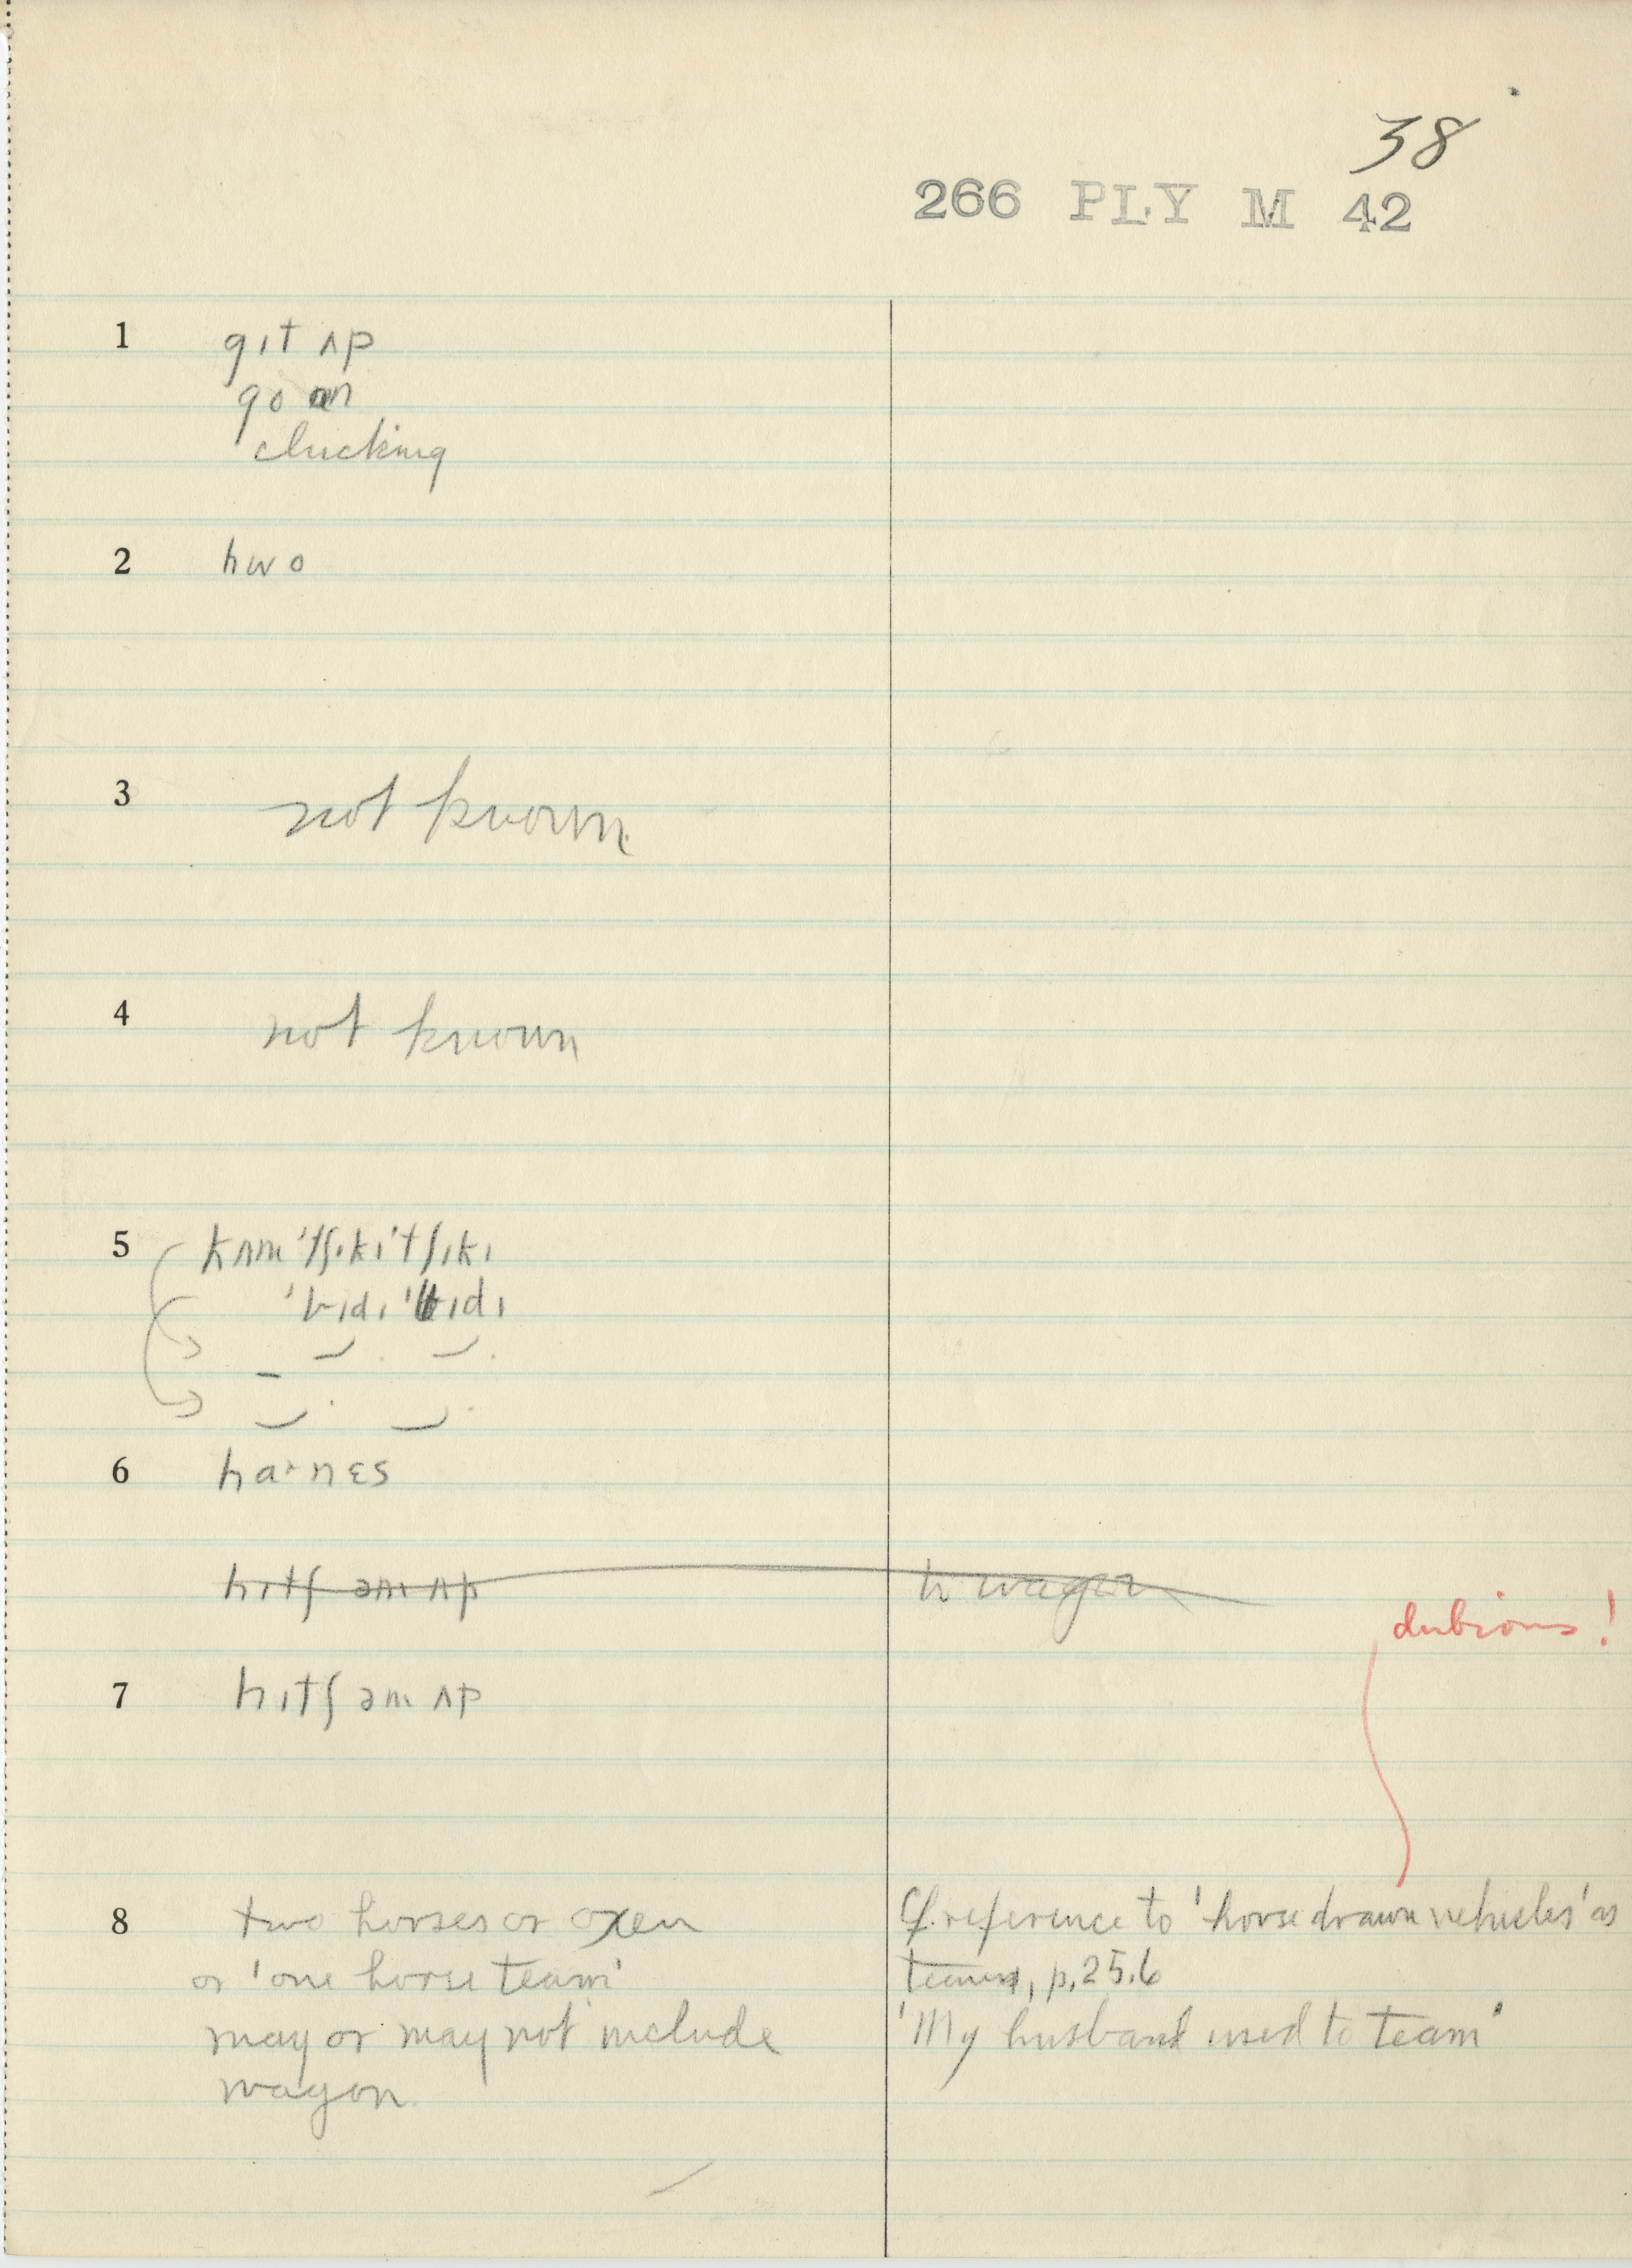 38
266 PLY M 42
1 gɪt ʌp
go ɒn
clucking
2 hwo
3 not known
4 not known
5 kʌm 'tʃɪkɪ 'tʃɪkɪ
6 ha·nɛs
hɪtʃ əm ʌp to wagon
dubious!
7 hɪtʃ əm ʌp
8 two horses or oxen
or 'one horse team'
may or may not include
wagon
Cf. reference to 'horse drawn vehicles' as
teams, p. 25.6
'My husband used to team'